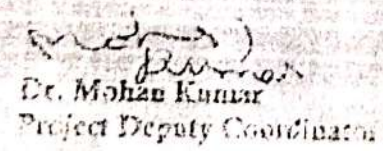 Dr. Mohan Kumar
Project Deputy Coordinator